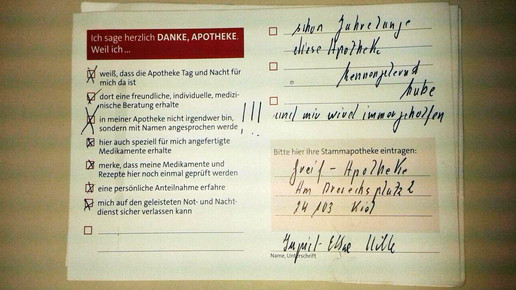 Ich sage herzlich DANKE, APOTHEKE.
Weil ich ...
weiß, dass die Apotheke Tag und Nacht für
mich da ist
dort eine freundliche, individuelle, medizi-
nische Beratung erhalte
in meiner Apotheke nicht irgendwer bin,
sondern mit Namen angesprochen werde !!!
hier auch speziell für mich angefertigte
Medikamente erhalte
merke, dass meine Medikamente und
Rezepte hier noch einmal geprüft werden
eine persönliche Anteilnahme erfahre
mich auf den geleisteten Not- und Nacht-
dienst sicher verlassen kann
schon Jahrelange
diese Apotheke
kennengelernd
habe
und mir wird immer geholfen
Bitte hier Ihre Stammapotheke eintragen:
Greif - Apotheke
Am Dreiecksplatz 2
24103 Kiel
Name, Unterschrift